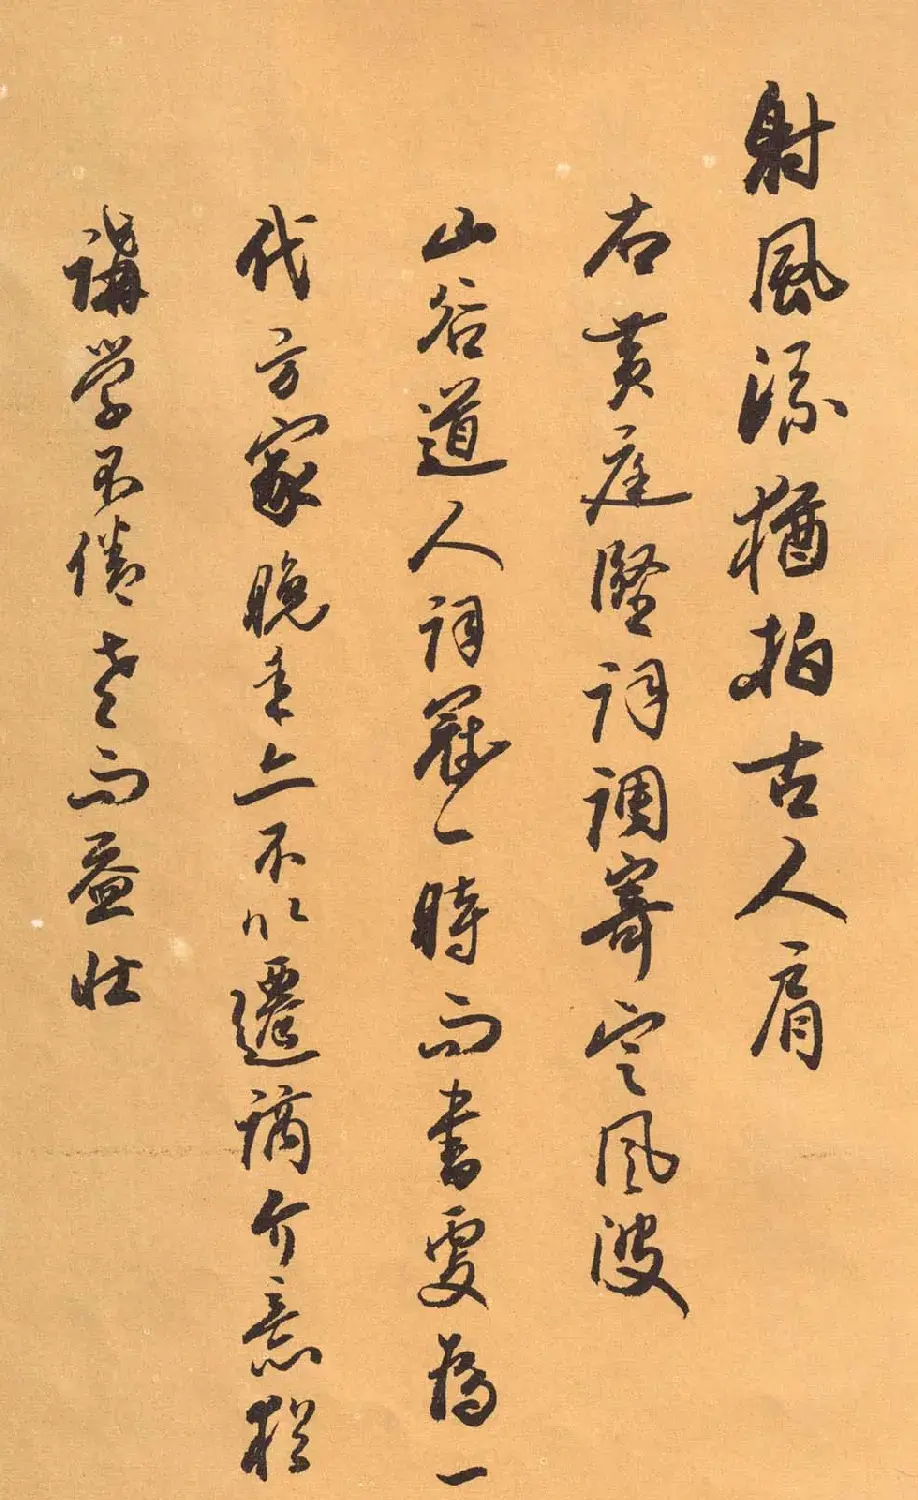 射風流猶拍古人肩
右黃庭堅詞調寄定風波
山谷道人詞冠一時而書更為一
代方家晚年亦不以遷謫介意猶
講學不倦老而益壯